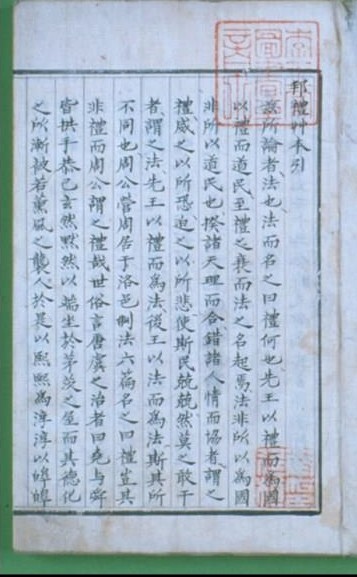 邦禮艸本引
玆所論者法也法而名之曰禮何也先王以禮而爲國
以禮而道民至禮之衰而法之名起焉法非所以爲國
非所以道民也揆諸天理而合錯諸人情而協者謂之
禮威之以所恐迫之以所悲使斯民兢兢然莫之敢干
者謂之法先王以禮而爲法後王以法而爲法斯其所
不同也周公營周居于洛邑制法六篇名之曰禮豈其
非禮而周公謂之禮哉世俗言唐虞之治者曰堯與舜
皆拱手恭己玄然默然以端坐於茅茨之屋而其德化
之所漸被若薰風之襲人於是以熙熙爲淳淳以皥皥